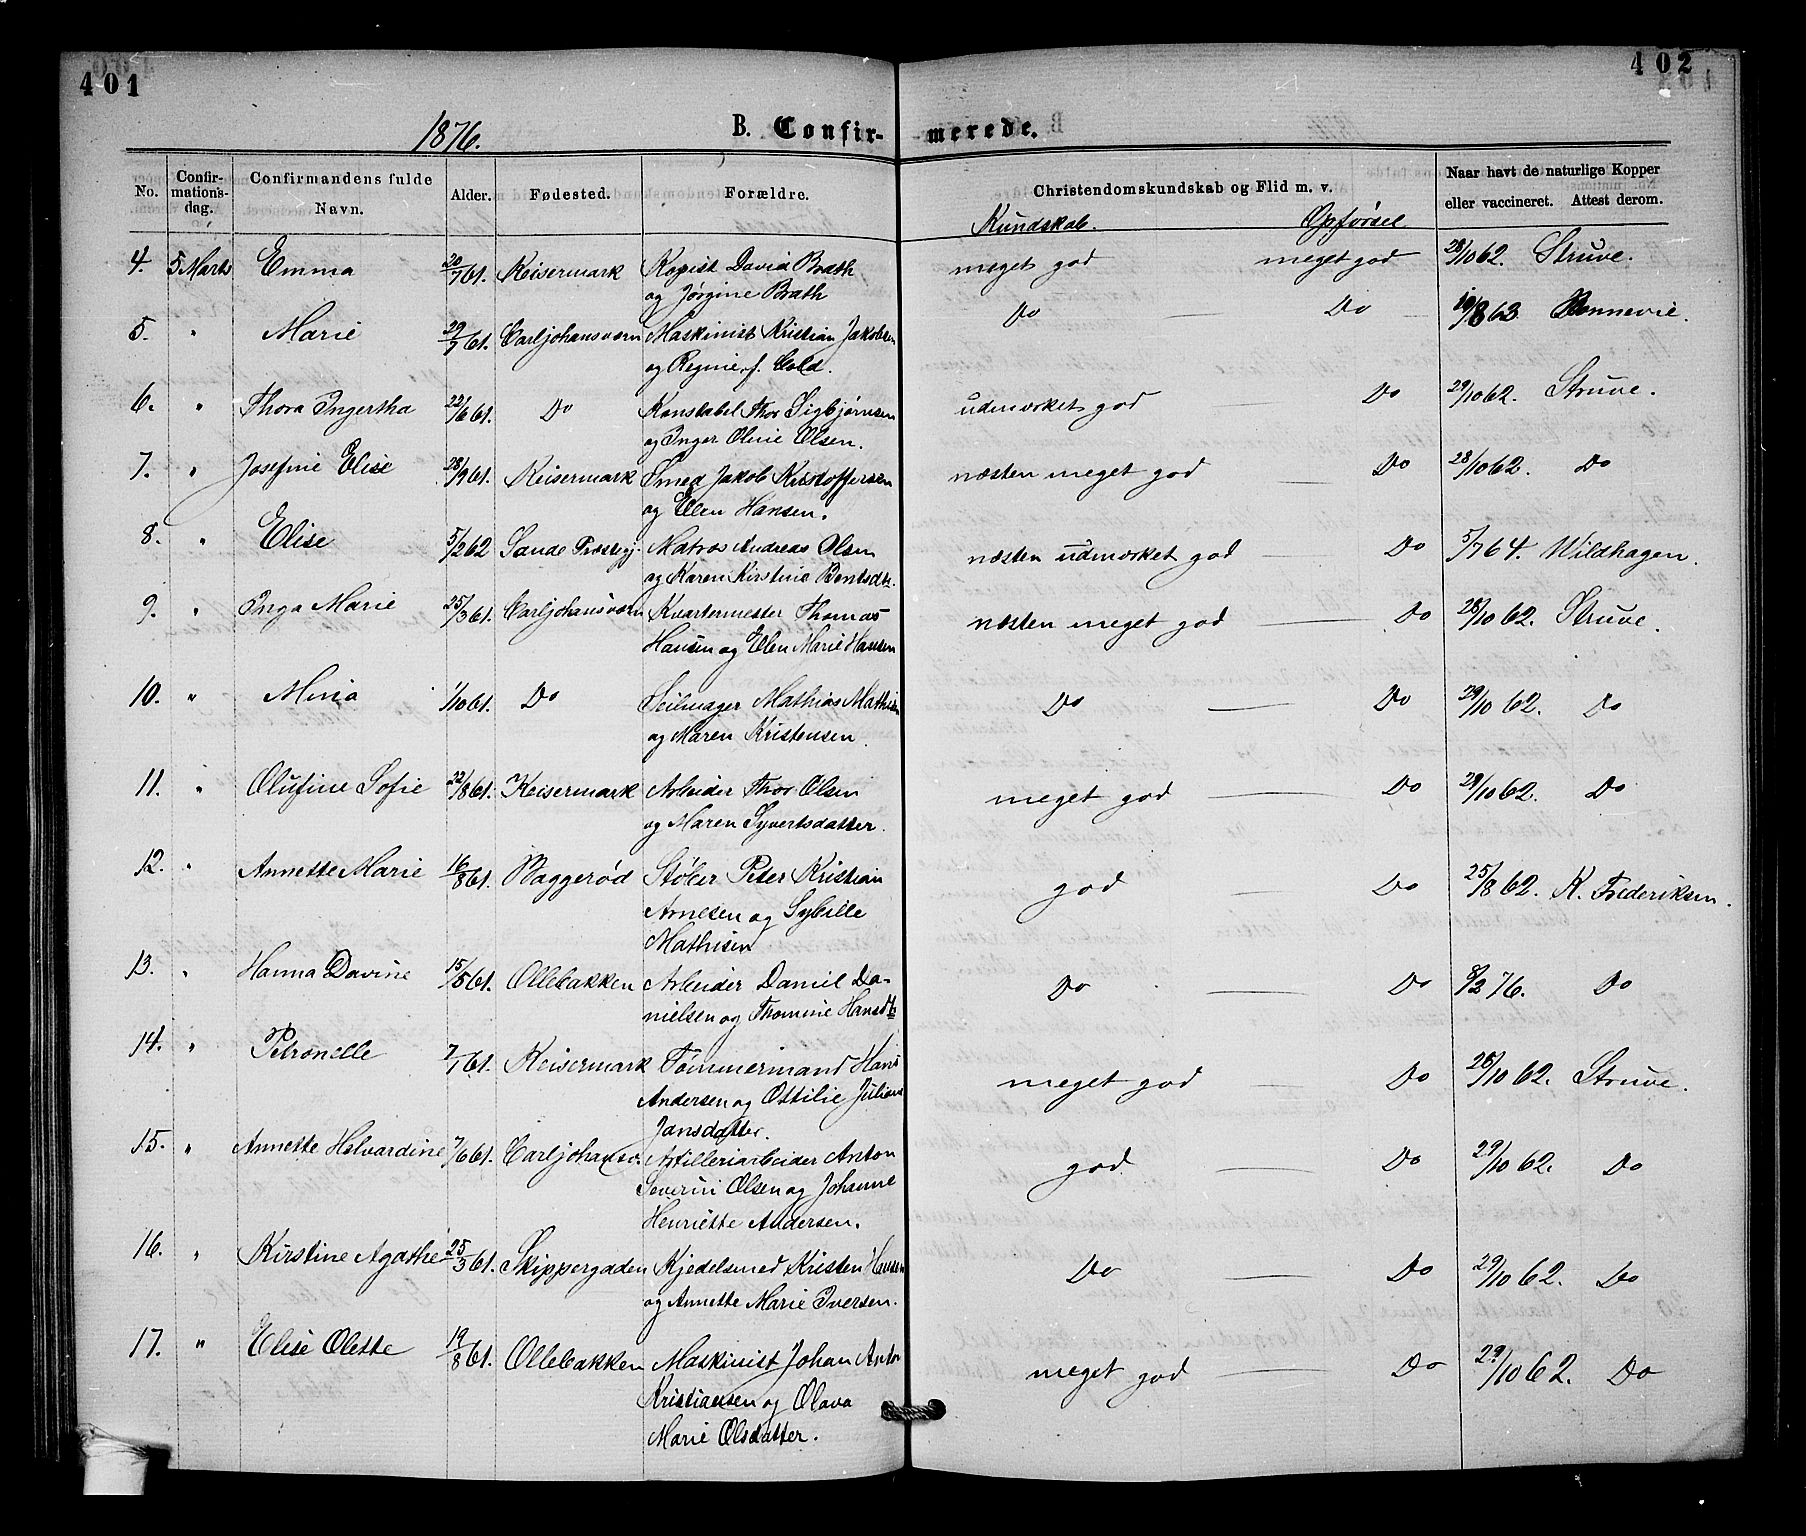 401
402
1876.
B. Confir-
merede.
No. Confir-mations-dag. Confirmandens fulde Navn. Alder. Fødested. Forældre. Christendomskundskab og Flid m. v. Naar havt de naturlige Kopper eller vaccineret. Attest derom.
Kundskab. Opførsel
4. 5 Marts Emma 20/7 61. Keisermark Kopist David Brath meget god meget god 28/10 62. Struve.
og Jørgine Brath
5. " Marie 29/7 61. Carljohansværn Maskinist Kristian Jakobsen Do Do 19/8 63 Bonnevie.
og Regine f. Cold.
6. " Thora Ingertha 22/6 61. Do Konstabel Thor Sigbjørnsen udmærket god Do 29/10 62. Struve.
og Inger Oline Olsen.
7. " Josefine Elise 28/9 61. Keisermark Smed Jakob Kristoffersen næsten meget god Do 28/10 62. Do
og Elen Hansen.
8. " Elise 5/2 62 Sande Præstegj. Matros Andreas Olsen næsten udmærket god Do 5/7 64. Wildhagen.
og Karen Kirstine Bentsdtr.
9. " Inga Marie 25/3 61. Carljohansværn Kvartermester Thomas næsten meget god Do 28/10 62. Struve.
Hansen og Elen Marie Hansen
10. " Mina 1/10 61. Do Seilmager Mathias Mathisen Do Do 29/10 62. Do
og Maren Kristensen.
11. " Olufine Sofie 22/8 61. Keisermark Arbeider Thor Olsen meget god Do 29/10 62. Do
og Maren Syvertsdatter.
12. " Annette Marie 16/8 61. Baggerød Støber Peter Kristian god Do 25/8 62. K. Frederiksen.
Arnesen og Sybille
Mathisen
13. " Hanna Davine 15/5 61. Ollebakken Arbeider Daniel Da- Do Do 8/2 76. Do
nielsen og Thomine Hansdtr
14. " Petronelle 7/1 61. Keisermark Tømmermand Hans meget god Do 28/10 62. Struve.
Andersen og Ottilie Juliane
Jansdatter.
15. " Annette Helvardine 7/6 61. Carljohansv. Artilleriarbeider Anton god Do 29/10 62. Do
Severin Olsen og Johanne
Henriette Andersen.
16. " Kirstine Agathe 25/3 61. Skippergaden Kjedelsmed Kristen Hansen Do Do 29/10 62. Do
og Annette Marie Iversen.
17. " Elise Olette 19/8 61. Ollebakken Maskinist Johan Anton meget god Do 29/10 62. Do
Kristiansen og Olava
Marie Olsdatter.